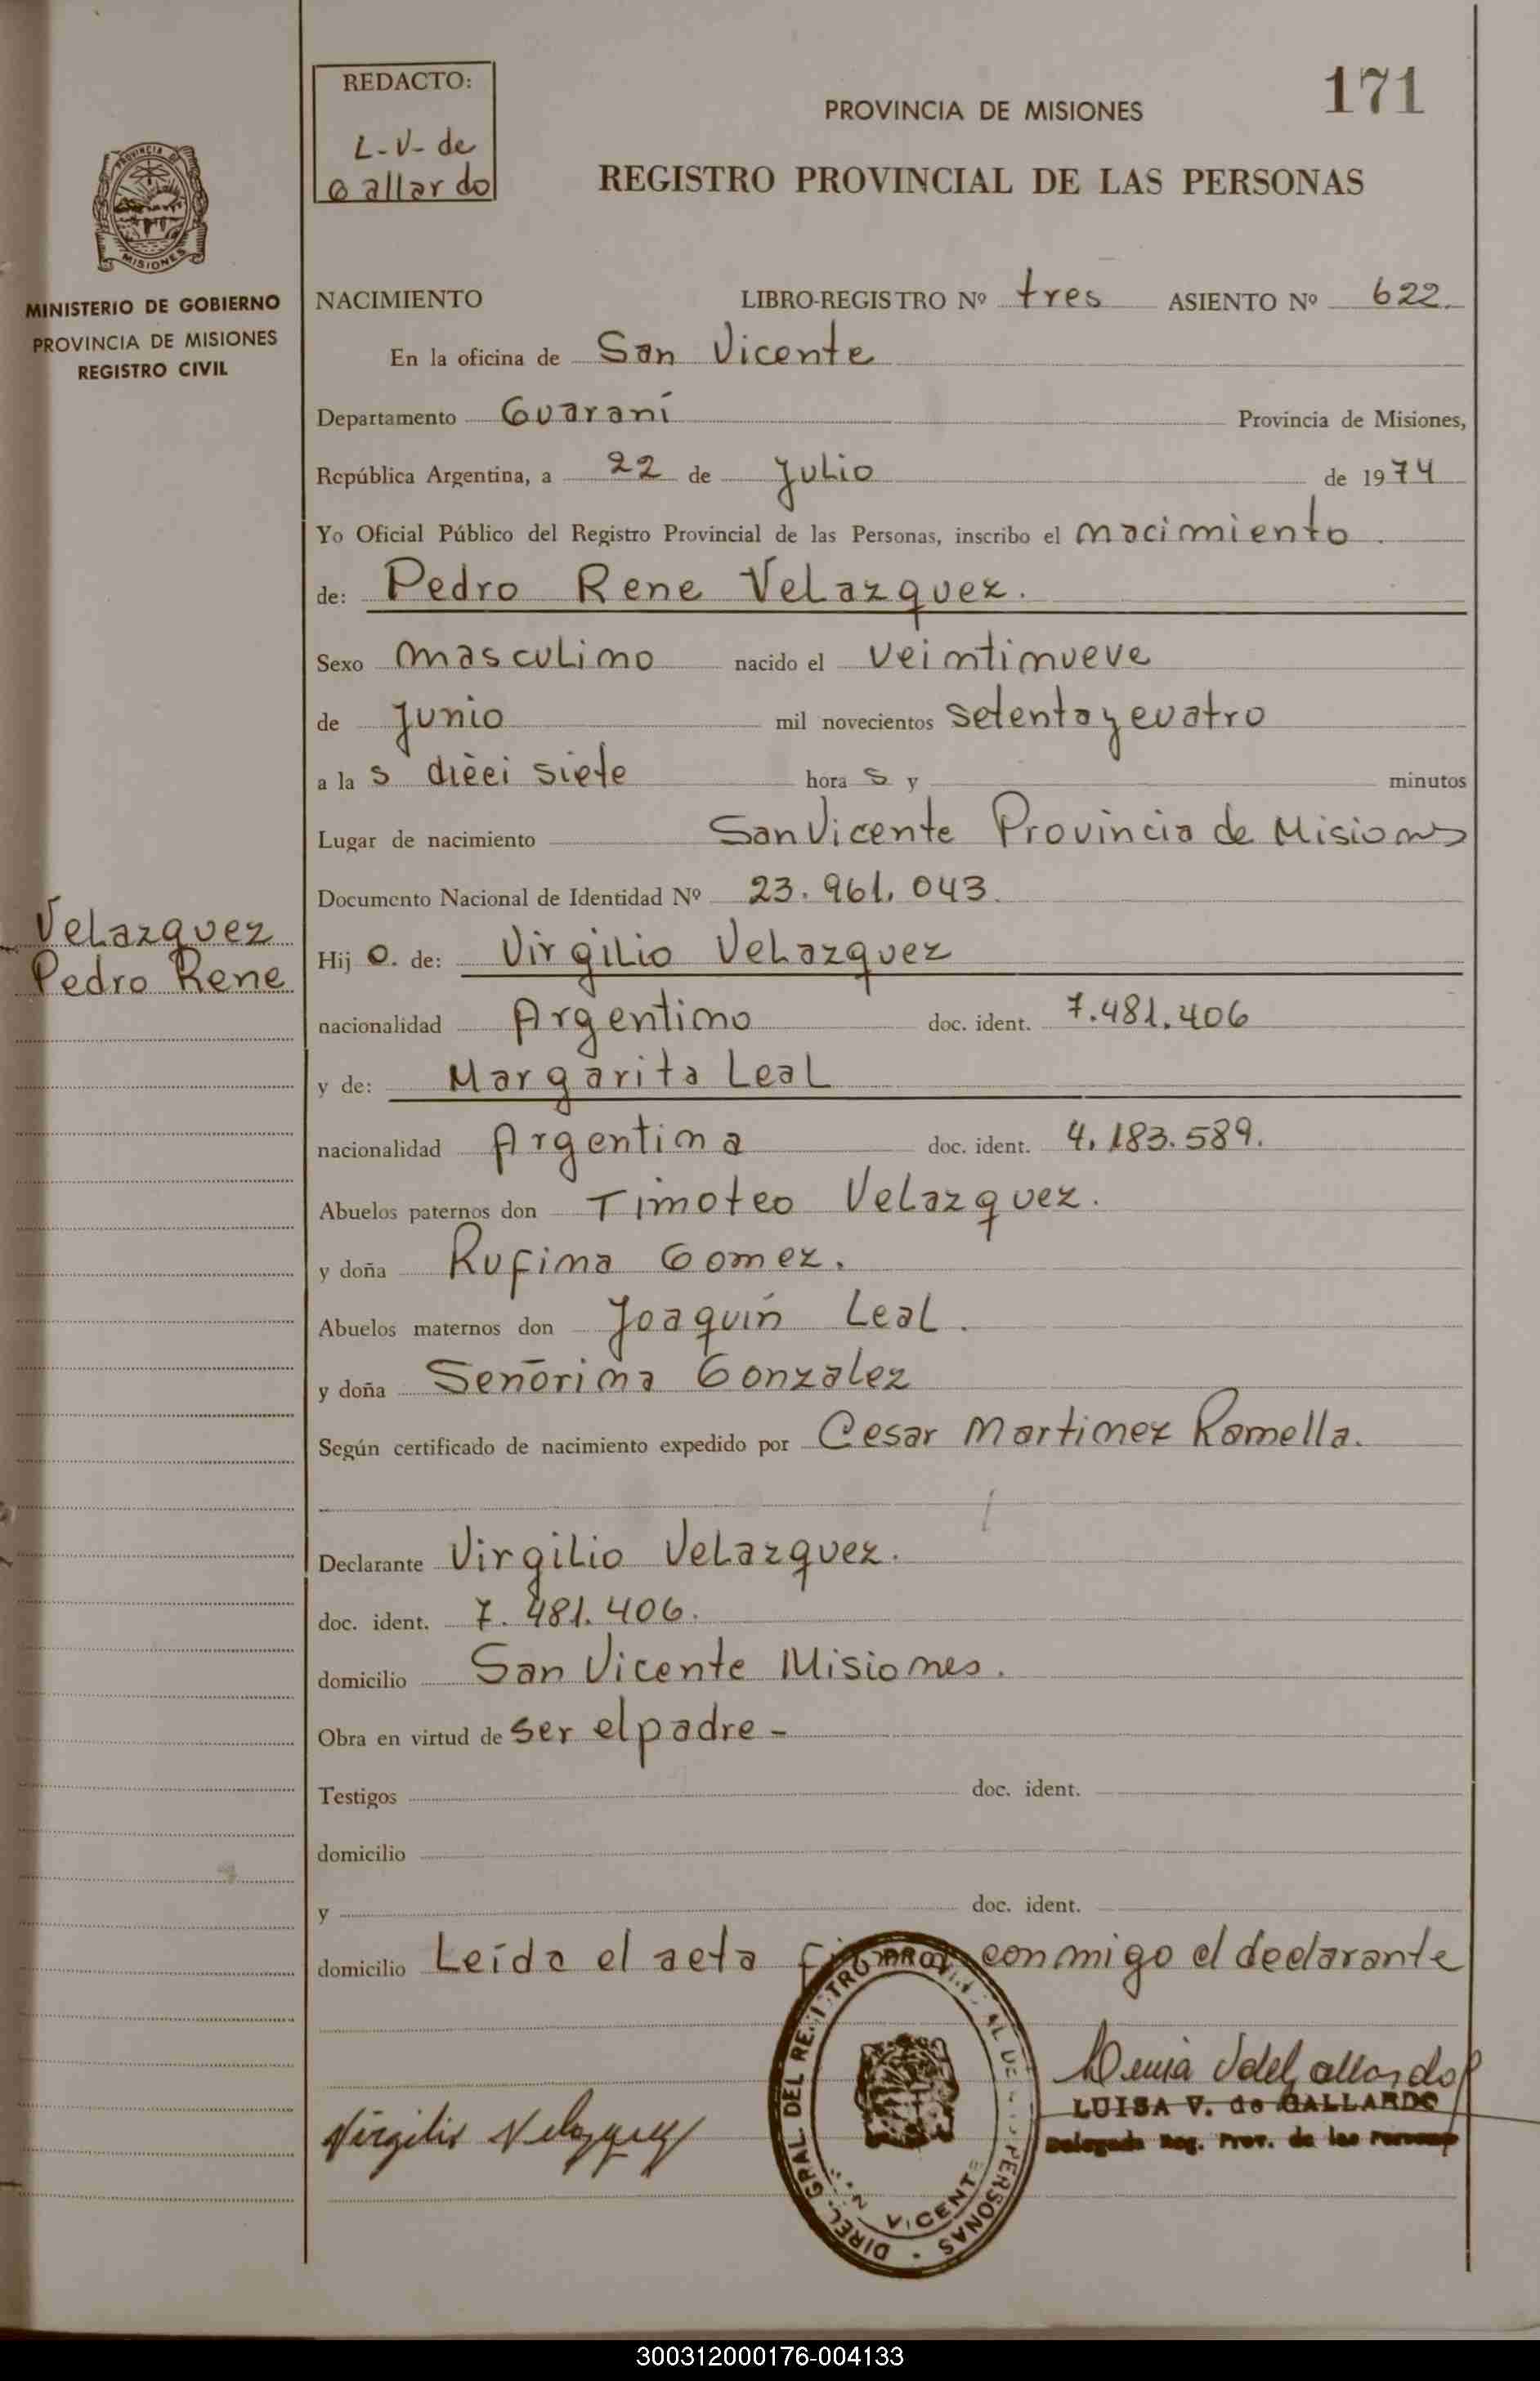 171
REDACTO:
L-V- de
Gallardo
PROVINCIA DE MISIONES
REGISTRO PROVINCIAL DE LAS PERSONAS
PROVINCIA DE
MISIONES
MINISTERIO DE GOBIERNO
PROVINCIA DE MISIONES
REGISTRO CIVIL
NACIMIENTO LIBRO-REGISTRO Nº tres ASIENTO Nº 622.
En la oficina de San Vicente
Departamento Guaraní Provincia de Misiones,
República Argentina, a 22 de Julio de 1974
Yo Oficial Público del Registro Provincial de las Personas, inscribo el nacimiento.
de: Pedro Rene Velazquez.
Sexo masculino nacido el veintinueve
de Junio mil novecientos setenta y cuatro
a la s dieci siete hora s y minutos
Lugar de nacimiento San Vicente Provincia de Misiones
Documento Nacional de Identidad Nº 23.961.043.
Velazquez
Pedro Rene
Hij o. de: Virgilio Velazquez
nacionalidad Argentino doc. ident. 7.481.406
y de: Margarita Leal
nacionalidad Argentina doc. ident. 4.183.589.
Abuelos paternos don Timoteo Velazquez.
y doña Rufina Gomez.
Abuelos maternos don Joaquín Leal.
y doña Señorina Gonzalez
Según certificado de nacimiento expedido por Cesar Martinez Romella.
Declarante Virgilio Velazquez.
doc. ident. 7.481.406.
domicilio San Vicente Misiones.
Obra en virtud de ser el padre -
Testigos doc. ident.
domicilio
y doc. ident.
domicilio Leída el acta conmigo el declarante
Virgilio Velazquez
DIREC. GRAL DEL REGISTRO PROVINCIAL DE LAS PERSONAS
SAN VICENTE
LUISA V. de GALLARDO
Delegada Reg. Prov. de las Personas
300312000176-004133